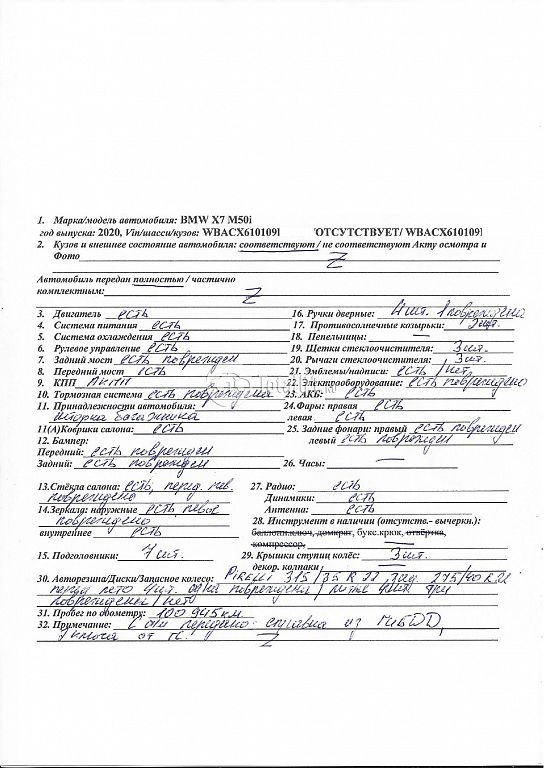 1. Марка/модель автомобиля: BMW X7 M50i
год выпуска: 2020, Vin/шасси/кузов: WBACX610109l 'ОТСУТСТВУЕТ/ WBACX610109l
2. Кузов и внешнее состояние автомобиля: соответствуют / не соответствуют Акту осмотра и
Фото Z
Автомобиль передан полностью / частично
комплектным: Z
3. Двигатель есть
4. Система питания есть
5. Система охлаждения есть
6. Рулевое управление есть
7. Задний мост есть поврежден
8. Передний мост есть
9. КПП АКПП
10. Тормозная система есть повреждена
11. Принадлежности автомобиля:
шторка багажника
11(А)Коврики салона: есть
12. Бампер:
Передний: есть поврежден
Задний: есть поврежден
16. Ручки дверные: 4 шт. 1 повреждена
17. Противосолнечные козырьки: 2 шт.
18. Пепельницы:
19. Щетки стеклоочистителя: 3 шт.
20. Рычаги стеклоочистителя: 3 шт.
21. Эмблемы/надписи: есть / нет
22. Электрооборудование: есть повреждено
23. АКБ: есть
24. Фары: правая есть
левая есть
25. Задние фонари: правый есть поврежден
левый есть поврежден
26. Часы:
13.Стёкла салона: есть, перед. лев.
повреждено
14.Зеркала: наружные есть левое
повреждено
внутреннее есть
15. Подголовники: 7 шт.
27. Радио: есть
Динамики: есть
Антенна: есть
28. Инструмент в наличии (отсутств.- вычеркн.):
баллон.ключ, домкрат, букс.крюк, отвёртка,
компрессор,
29. Крышки ступиц колёс: 3 шт.
декор. колпаки
30. Авторезина/Диски/Запасное колесо: Pirelli 315/35 R 22 зад. 275/40 R 22
перед лето 4 шт. одна повреждена / литые 4 шт три
повреждены / нет
31. Пробег по одометру: 100 945 км.
32. Примечание: С а/м передано: справка из ГИБДД,
2 ключа от ТС. Z